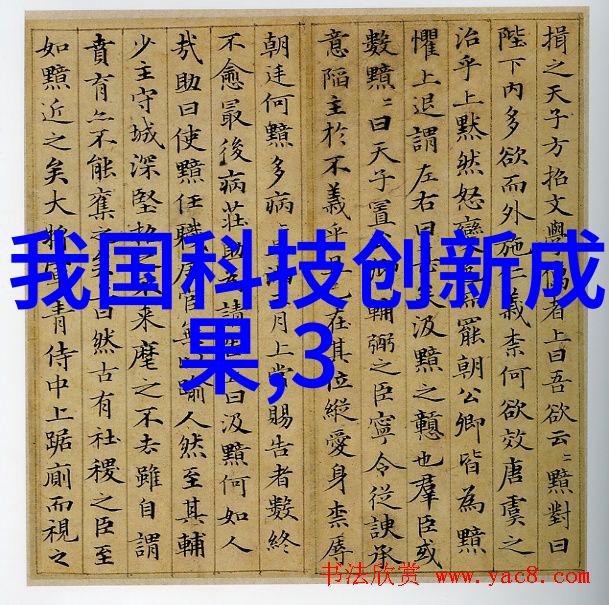 揖之天子方招文學儒者上曰吾欲云〻黯對曰
陛下內多欲而外施仁義柰何欲效唐虞之
治乎上黙然怒變罷朝公卿皆為黯
懼上退謂左右曰矣汲黯之戇也羣臣或
數黯〻曰天子置輔弼之臣寧令從諛承
意陷主於不義乎在其位縱愛身柰辱
朝廷何黯多病滿月上常賜告者數終
不愈最後病莊助請曰汲黯何如人
㢤助曰使黯任職居官無踰人然至其輔
少主守城深堅招之不來麾之不去雖自謂
賁育亦不能奪之矣曰然古有社稷之臣至
如黯近之矣大將軍青侍中上踞廁而視之
我国科技创新成
果,3
书法欣赏 www.yac8.com